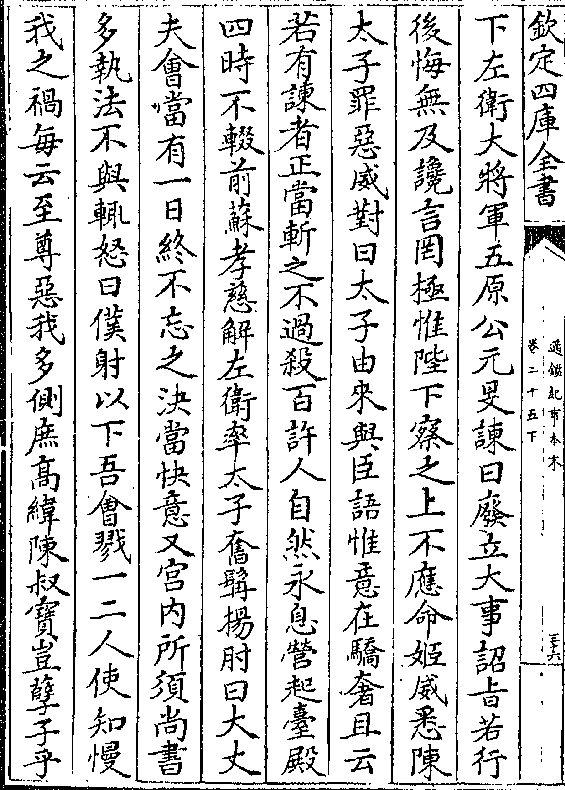 欽定四庫全書
通鑑紀事本末
卷二十五下
三十六
下左衛大將軍五原公元旻諫曰廢立大事詔旨若行
後悔無及讒言罔極惟陛下察之上不應命姬威悉陳
太子罪惡威對曰太子由來與臣語惟意在驕奢且云
若有諫者正當斬之不過殺百許人自然永息營起臺殿
四時不輟前蘇孝慈解左衛率太子奮髯揚肘曰大丈
夫會當有一日終不忘之決當快意又宮内所須尚書
多執法不與輒怒曰僕射以下吾會戮一二人使知慢
我之禍每云至尊惡我多側庶高緯陳叔寶豈孽子乎